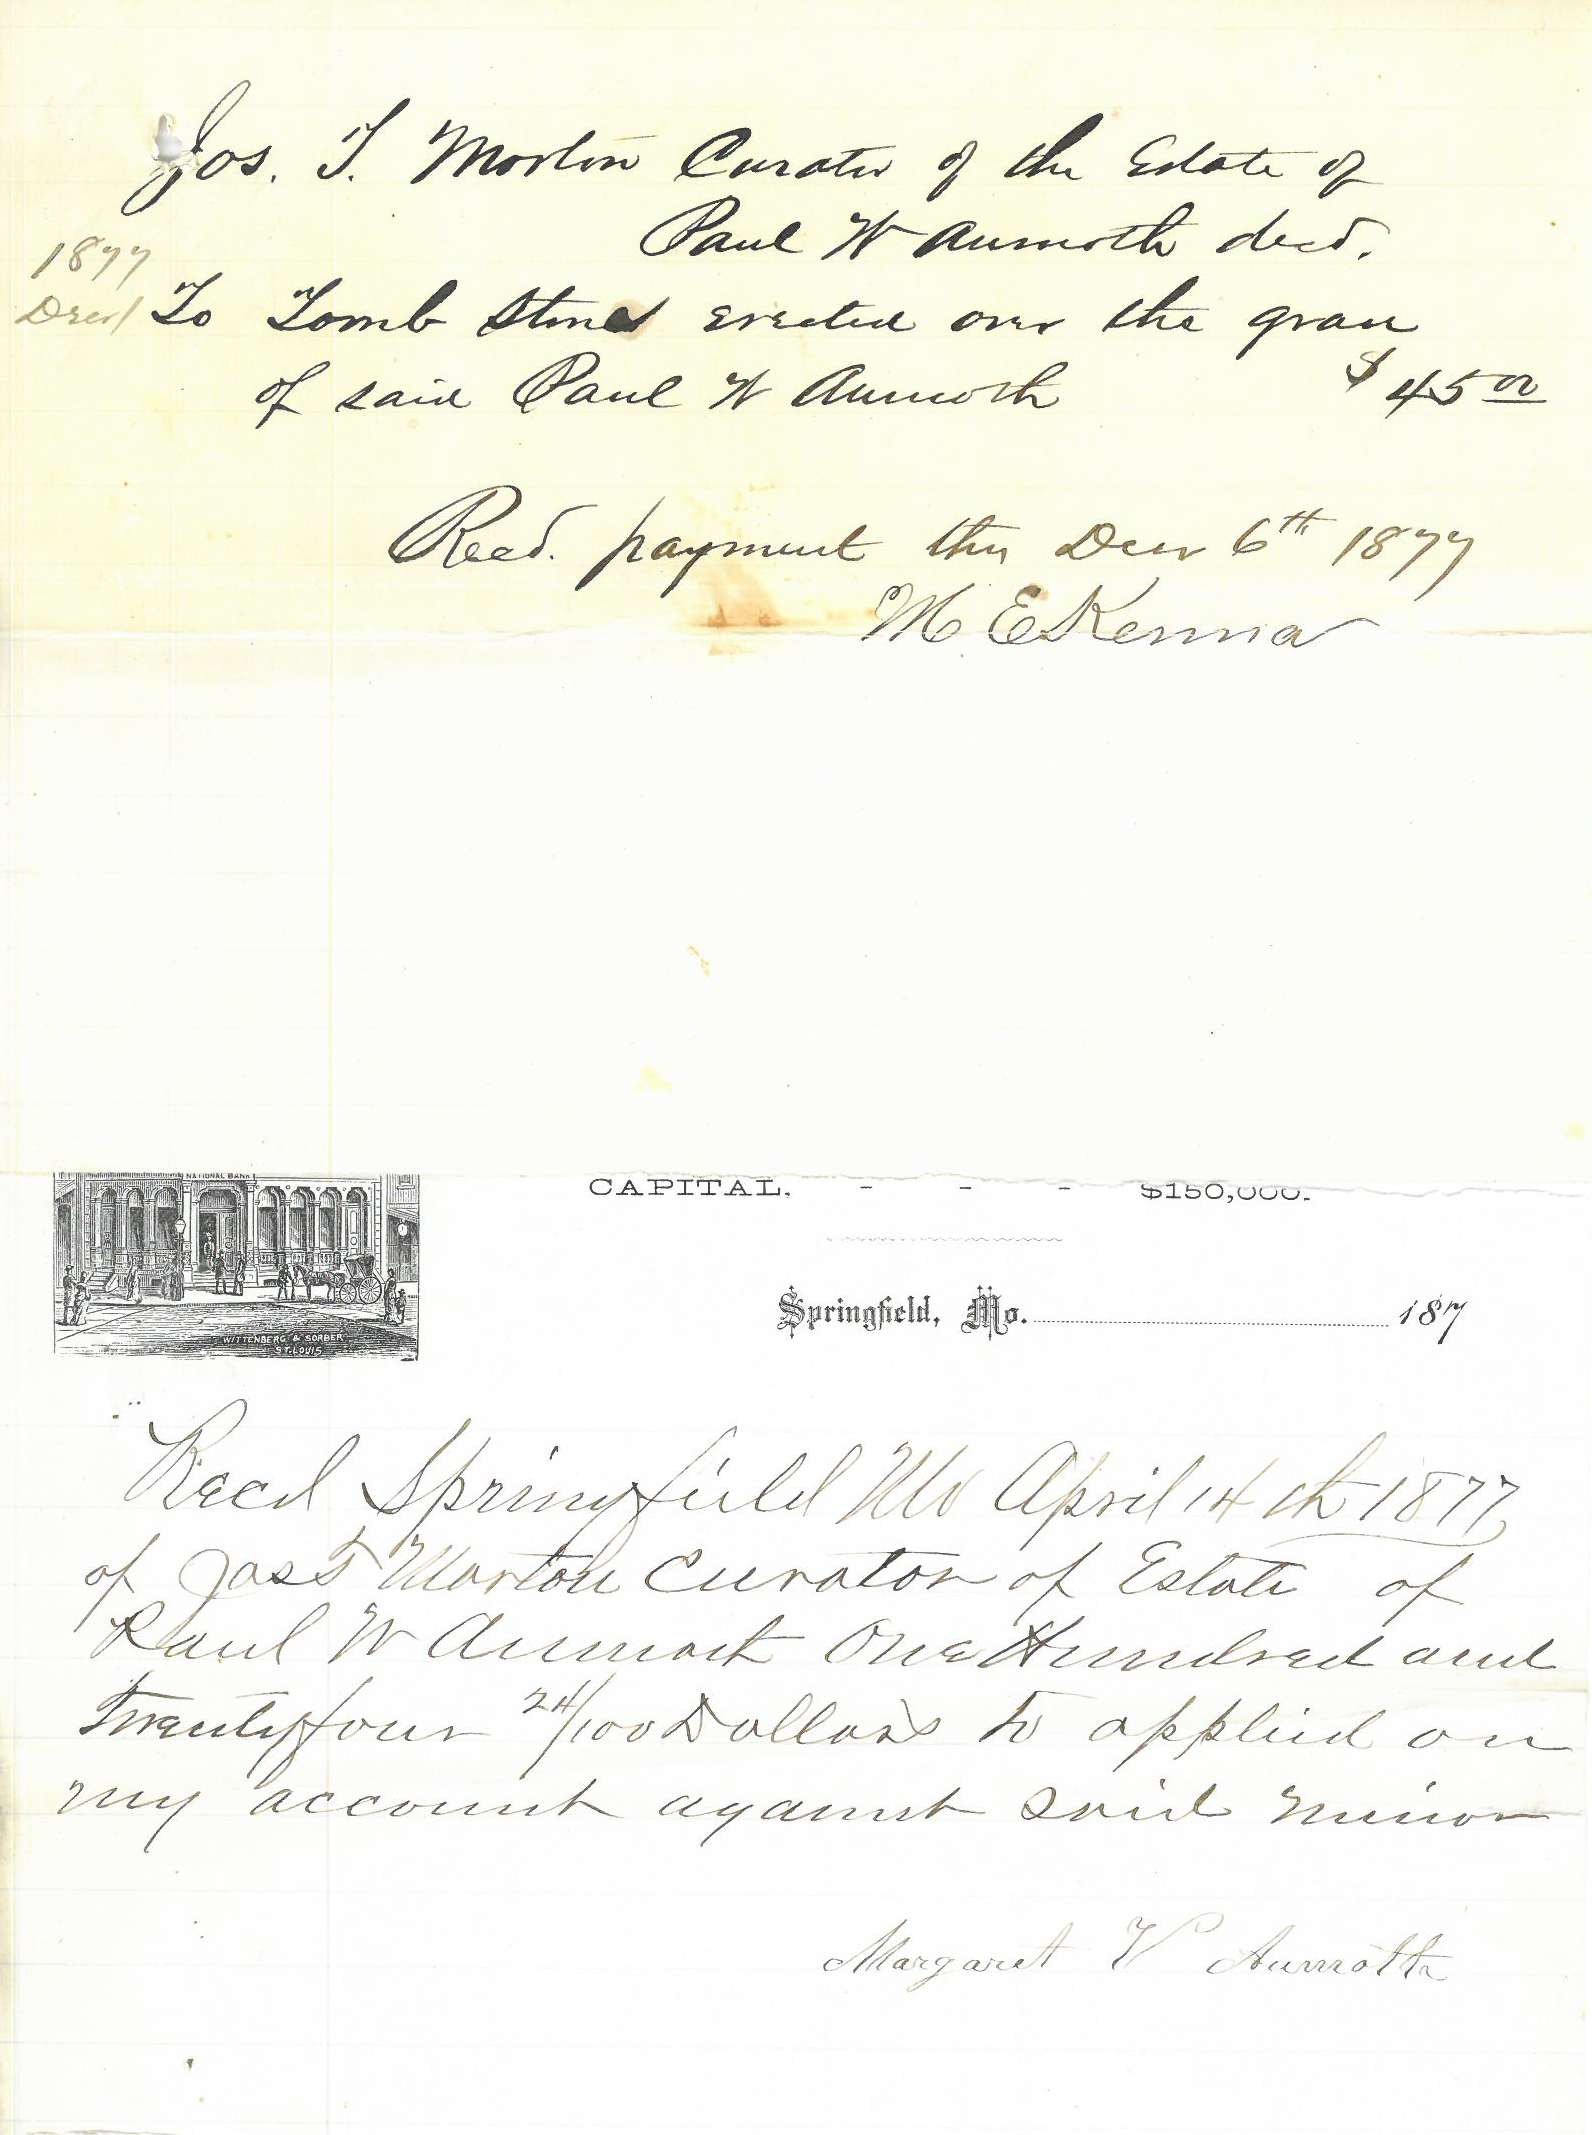 Jos. T. Morton Curator of the Estate of
Paul W Aumoth decd.
1877
Decr 1 To Tomb Stones erected over the grave
of said Paul W Aumoth $45 00
Recd. payment this Decr 6th 1877
M. E Kenna
NATIONAL BANK
CAPITAL, - - - $150,000.
WITTENBERG & SORBER
ST. LOUIS
Springfield, Mo. 187
Recd Springfield Mo April 14th 1877
of Jas T Morton Curator of Estate of
Paul W Aumock One Hundred and
Twentyfour 24/100 Dollars to applied on
my account against said minor
Margaret V Aumoth